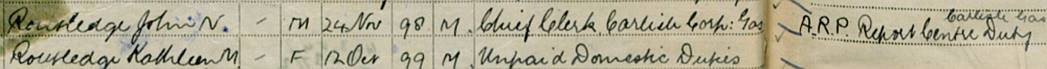 Routledge John N. - M 24 Nov 98 M. Chief Clerk Carlisle Corp: Gas Carlisle Gas
A.R.P. Report Centre Duty
Routledge Kathleen M. - F 12 Oct 99 M. Unpaid Domestic Duties